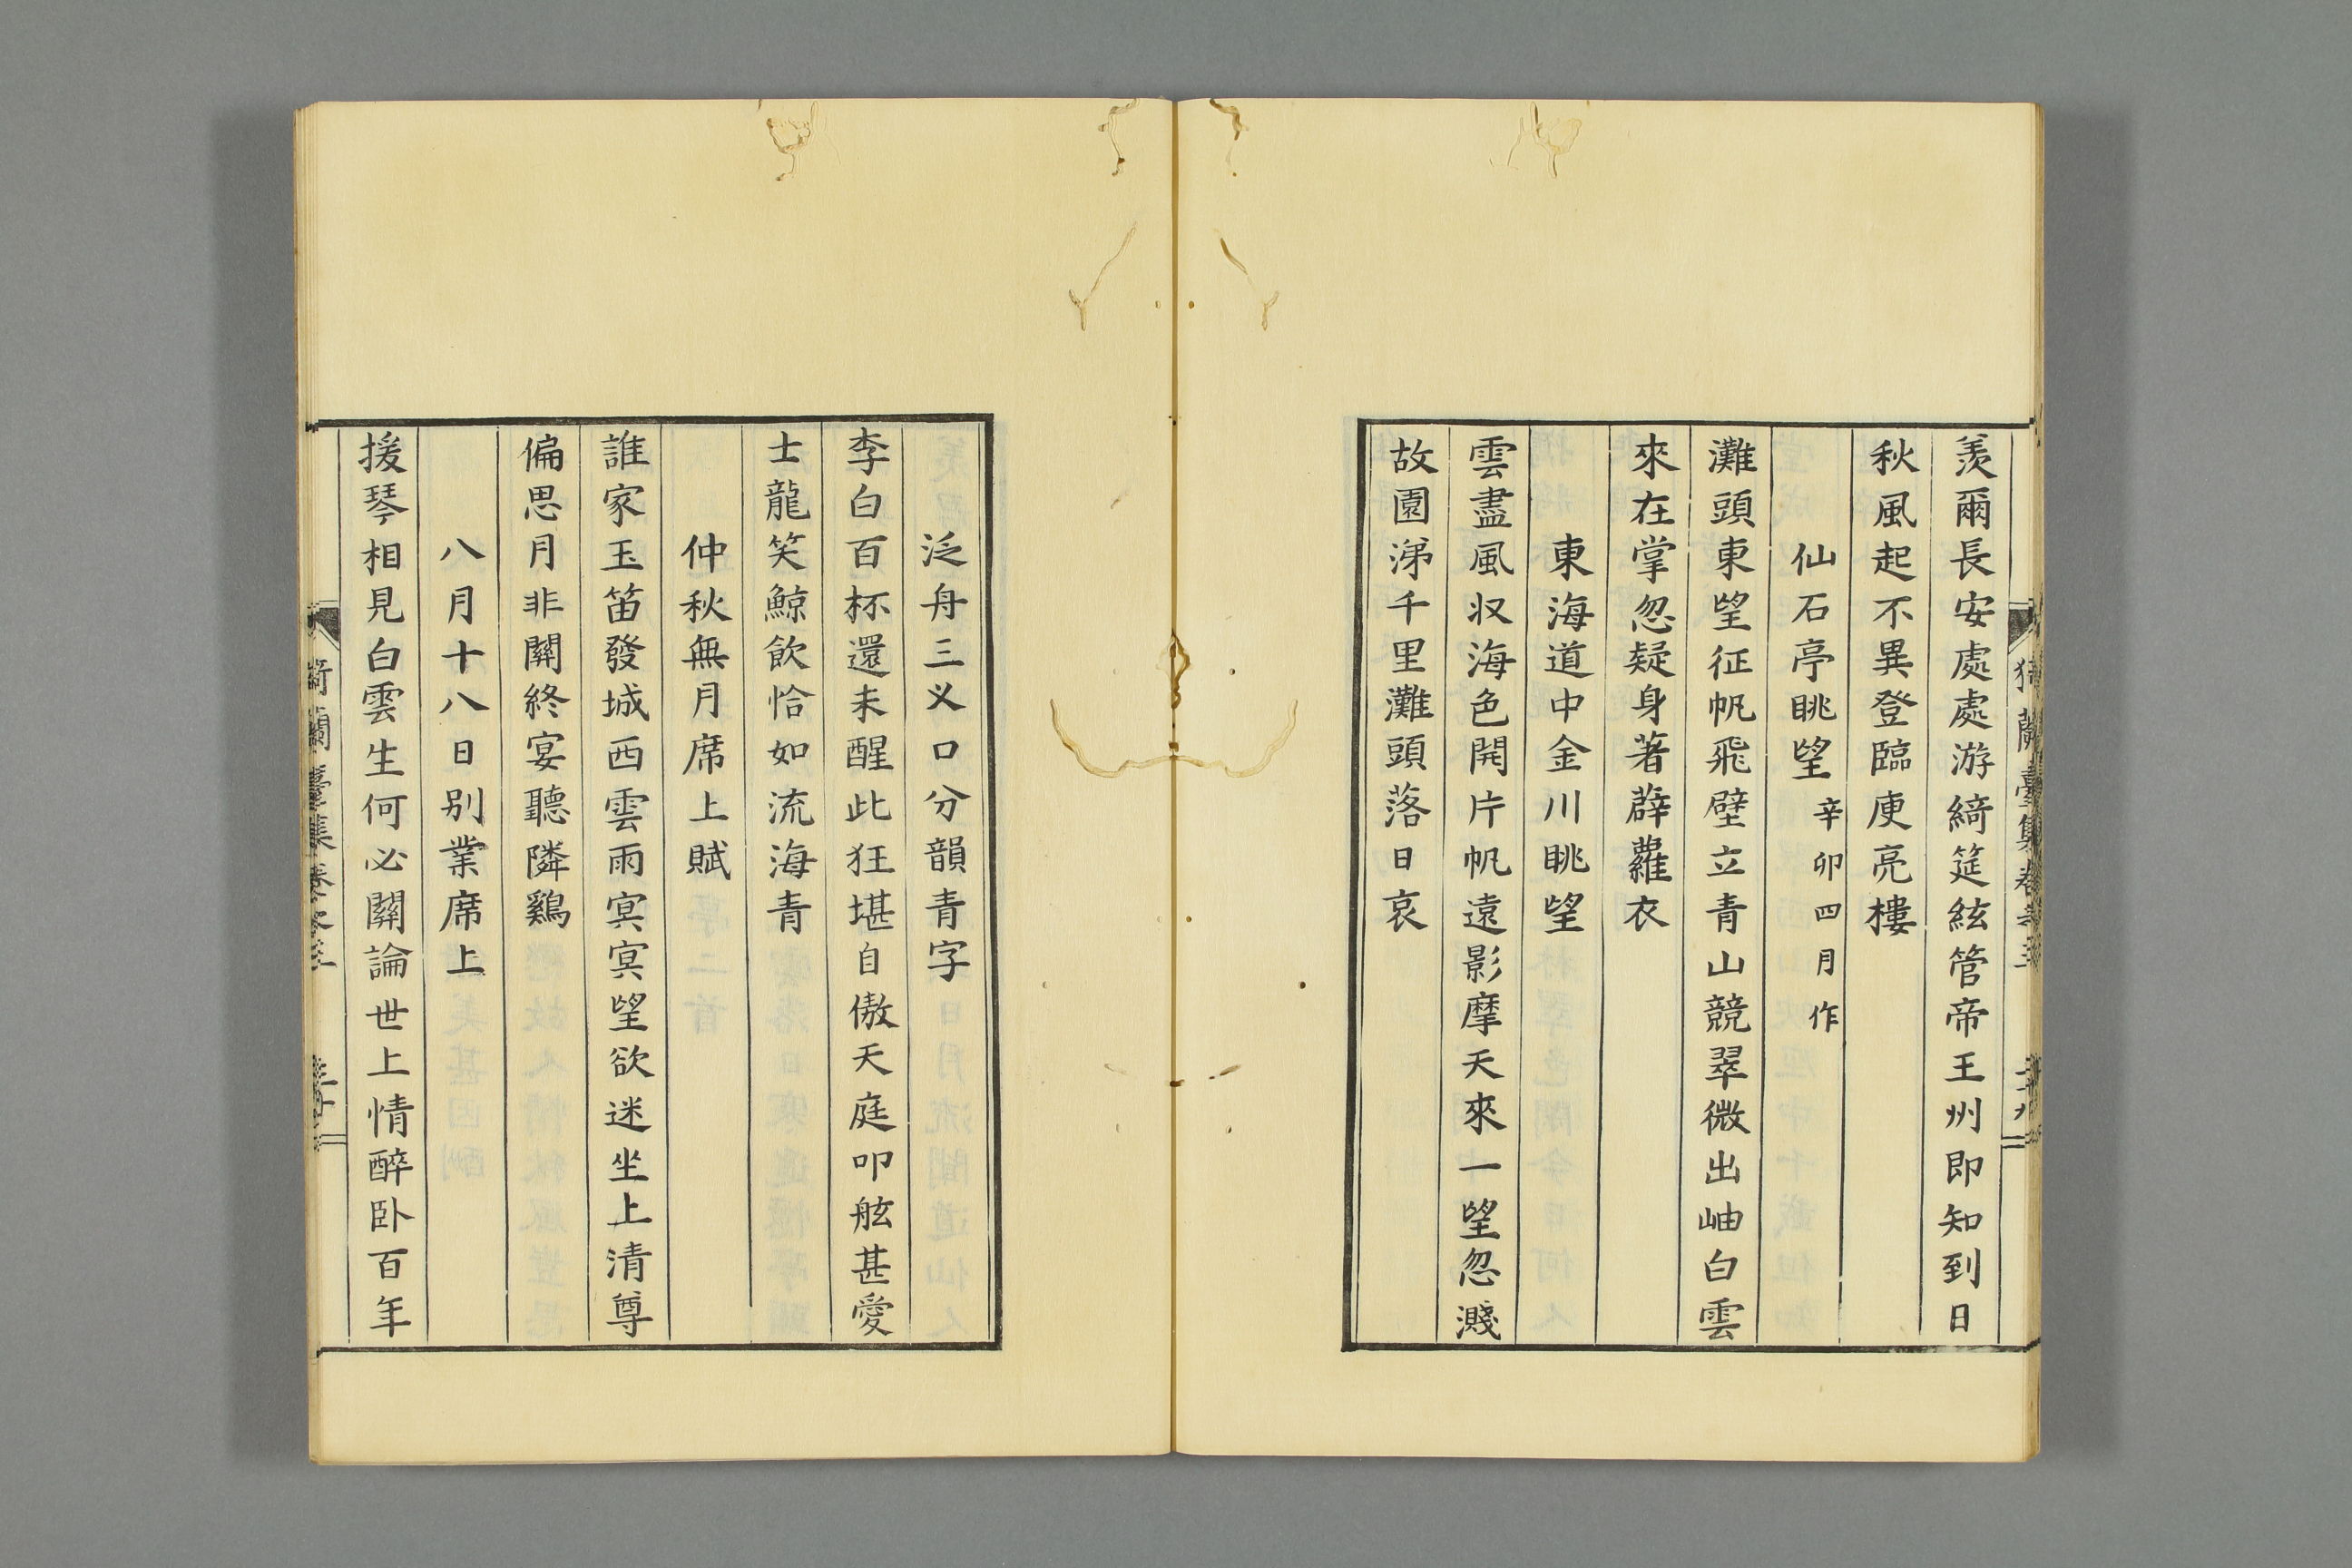 羨爾長安處處游綺筵絃管帝王州即知到日
秋風起不異登臨庾亮樓
仙石亭眺望辛卯四月作
灘頭東望征帆飛壁立青山競翠微出岫白雲
來在掌忽疑身著薜蘿衣
東海道中金川眺望
雲盡風収海色開片帆遠影摩天來一望忽濺
故園涕千里灘頭落日哀
泛舟三义口分韻青字
李白百杯還未醒此狂堪自傲天庭叩舷甚愛
士龍笑鯨飲恰如流海青
仲秋無月席上賦
誰家玉笛發城西雲雨冥冥望欲迷坐上清尊
偏思月非關終宴聽隣鷄
八月十八日別業席上
援琴相見白雲生何必關論世上情醉臥百年
蘭臺集卷之三